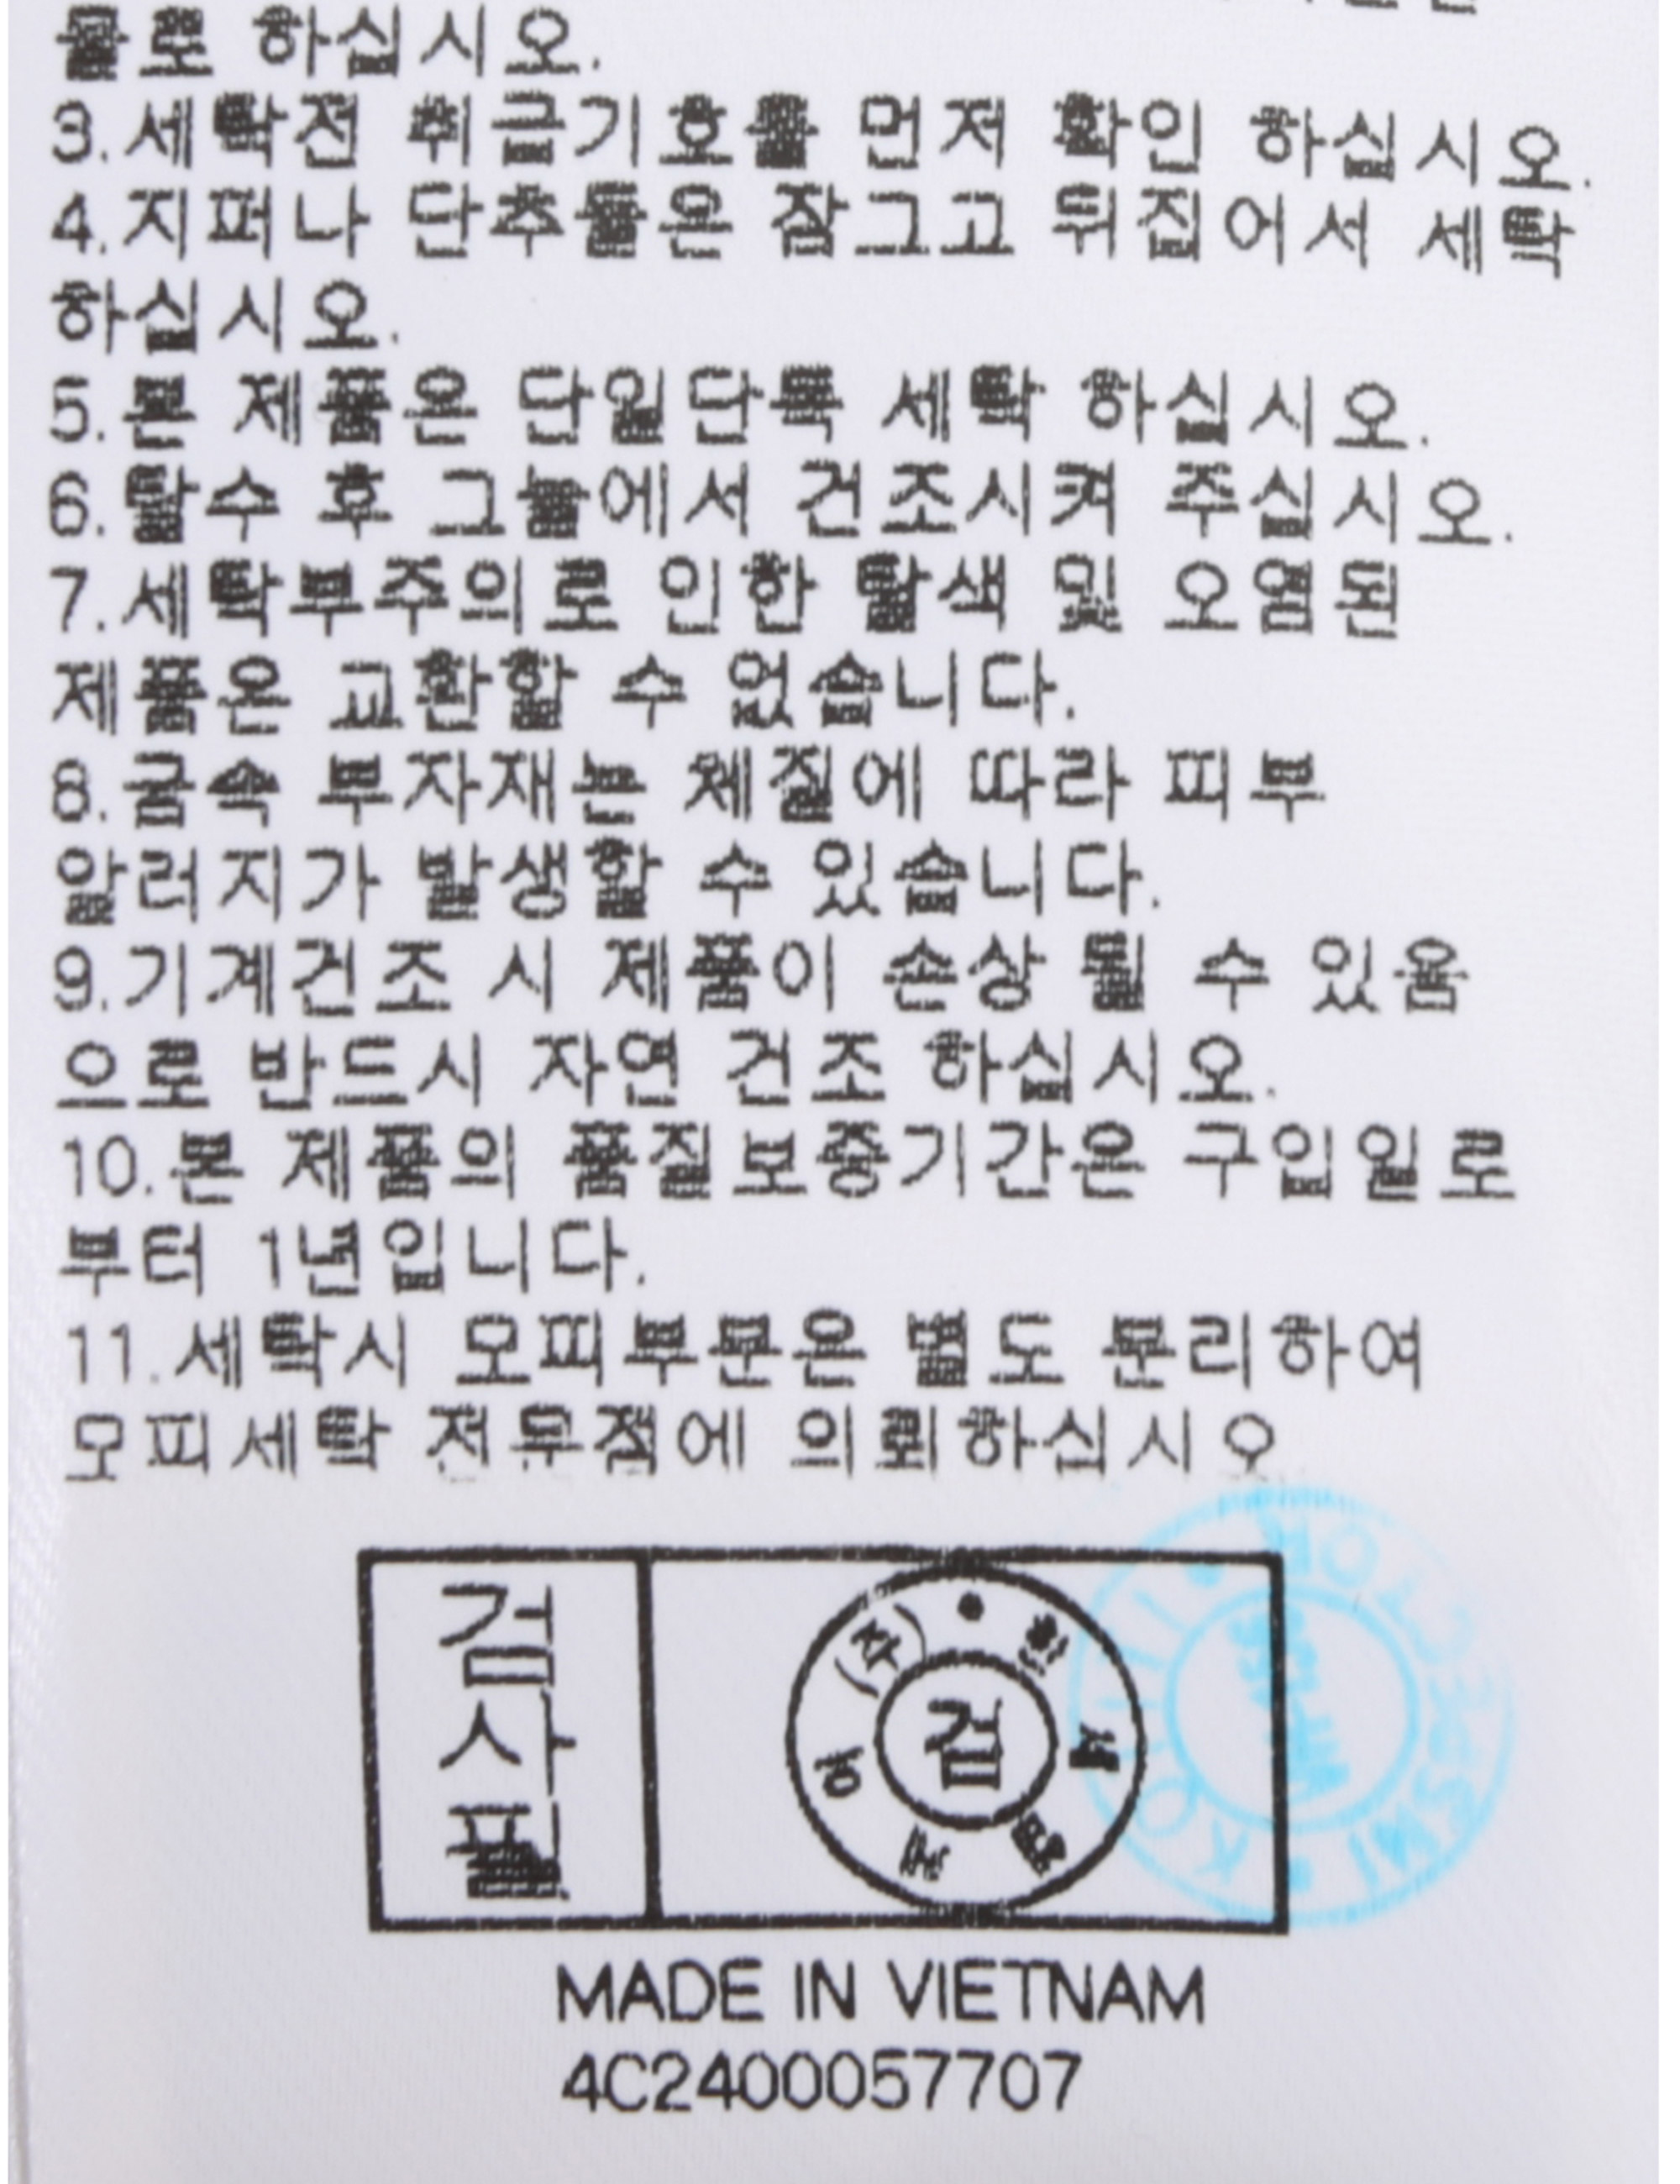 물로 하십시오.
3.세탁전 취급기호를 먼저 확인 하십시오.
4.지퍼나 단추들은 잠그고 뒤집어서 세탁
하십시오.
5.본 제품은 단일단독 세탁 하십시오.
6.탈수 후 그늘에서 건조시켜 주십시오.
7.세탁부주의로 인한 탈색 및 오염된
제품은 교환할 수 없습니다.
8.금속 부자재는 체질에 따라 피부
알러지가 발생할 수 있습니다.
9.기계건조 시 제품이 손상 될 수 있음
으로 반드시 자연 건조 하십시오.
10.본 제품의 품질보증기간은 구입일로
부터 1년입니다.
11.세탁시 모피부분은 별도 분리하여
모피세탁 전문점에 의뢰하십시오
검사필
(주)
검
MADE IN VIETNAM
4C2400057707